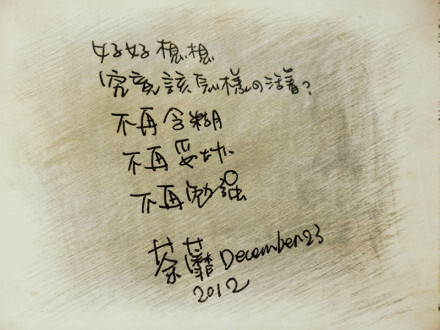 好好想想
究竟該怎樣の活着?
不再含糊
不再妥协
不再勉强
荼蘼 December 23
2012